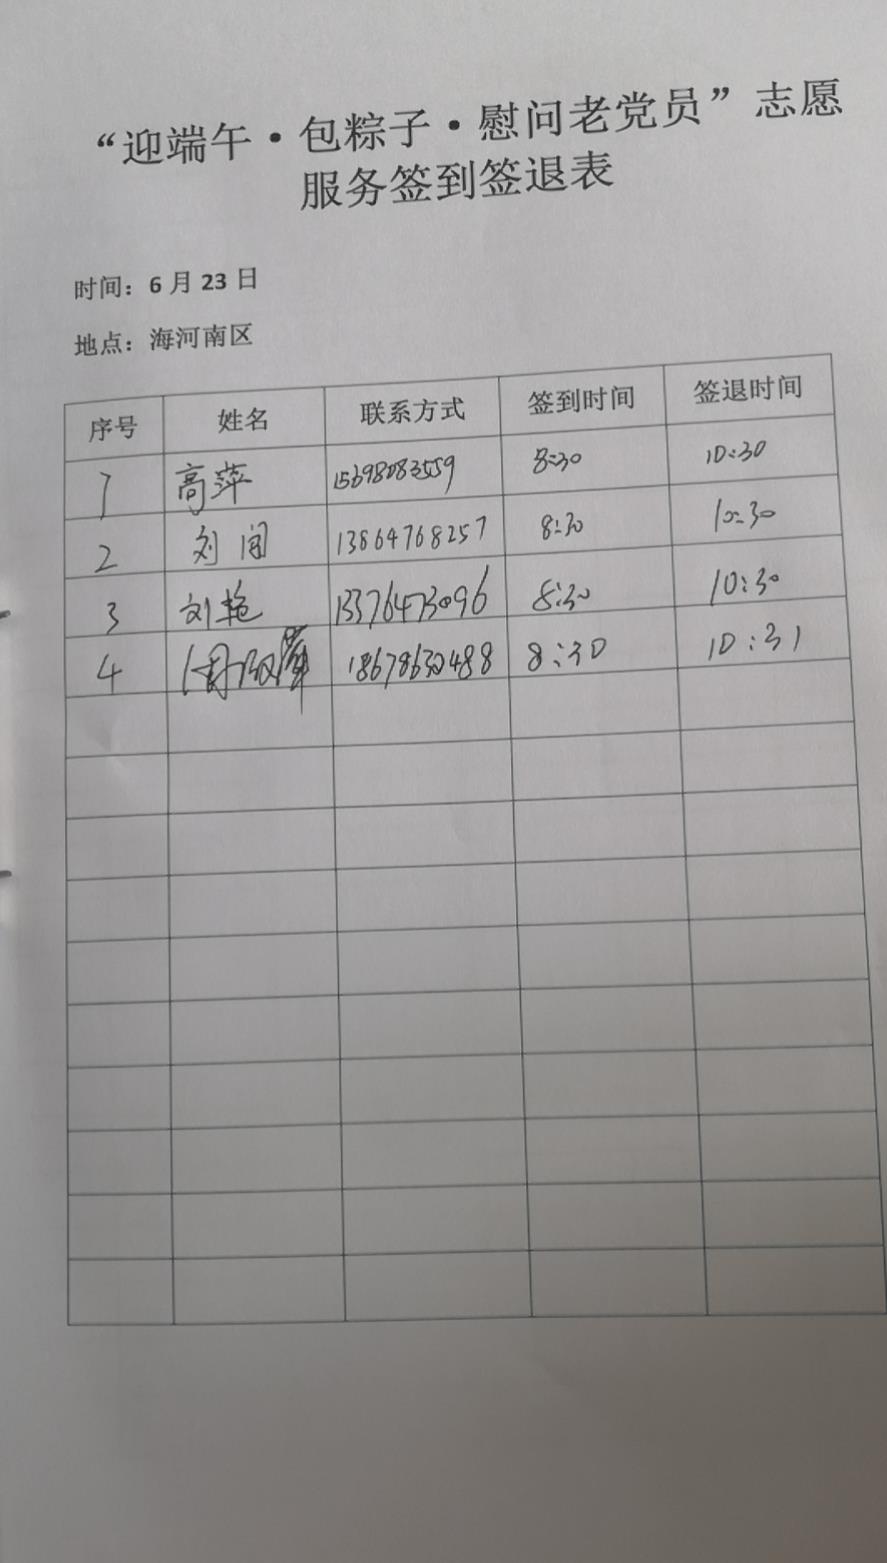 “迎端午·包粽子·慰问老党员”志愿
服务签到签退表
时间：6月23日
地点：海河南区
序号 姓名 联系方式 签到时间 签退时间
1 高萍 15698083559 8:30 10:30
2 刘闻 13864768257 8:30 10:30
3 刘艳 13376473096 8:30 10:30
4 18678630488 8:30 10:31